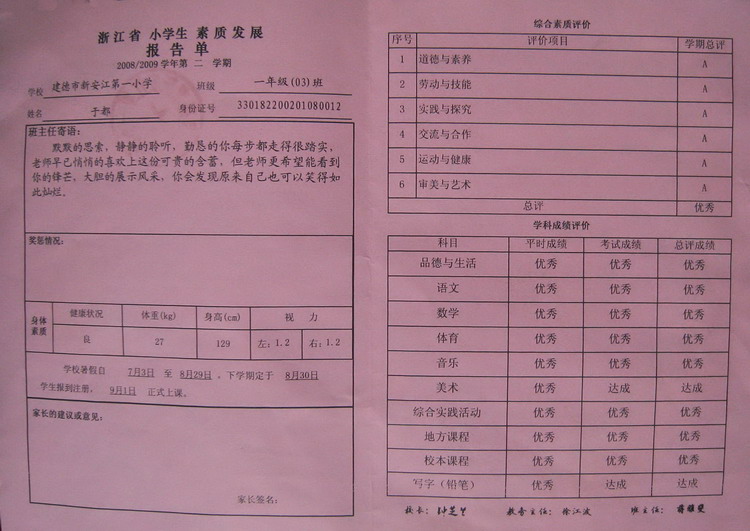 浙江省 小学生 素质发展
报告单
2008/2009学年第 二 学期
学校 建德市新安江第一小学 班级 一年级(03)班
姓名 于都 身份证号 330182200201080012
班主任寄语:
默默的思索,静静的聆听,勤恳的你每步都走得很踏实,
老师早已悄悄的喜欢上这份可贵的含蓄,但老师更希望能看到
你的锋芒。大胆的展示风采,你会发现原来自己也可以笑得如
此灿烂。
奖惩情况:
身体素质 健康状况 体重(kg) 身高(cm) 视 力
良 27 129 左:1.2 右:1.2
学校暑假自 7月3日 至 8月29日 ,下学期定于 8月30日
学生报到注册, 9月1日 正式上课。
家长的建议或意见:
家长签名:
综合素质评价
序号 评价项目 学期总评
1 道德与素养 A
2 劳动与技能 A
3 实践与探究 A
4 交流与合作 A
5 运动与健康 A
6 审美与艺术 A
总评 优秀
学科成绩评价
科目 平时成绩 考试成绩 总评成绩
品德与生活 优秀 优秀 优秀
语文 优秀 优秀 优秀
数学 优秀 优秀 优秀
体育 优秀 优秀 优秀
音乐 优秀 优秀 优秀
美术 优秀 达成 达成
综合实践活动 优秀 优秀 优秀
地方课程 优秀 优秀 优秀
校本课程 优秀 优秀 优秀
写字(铅笔) 优秀 达成 达成
校长: 钟芝兰 教务主任: 徐江波 班主任: